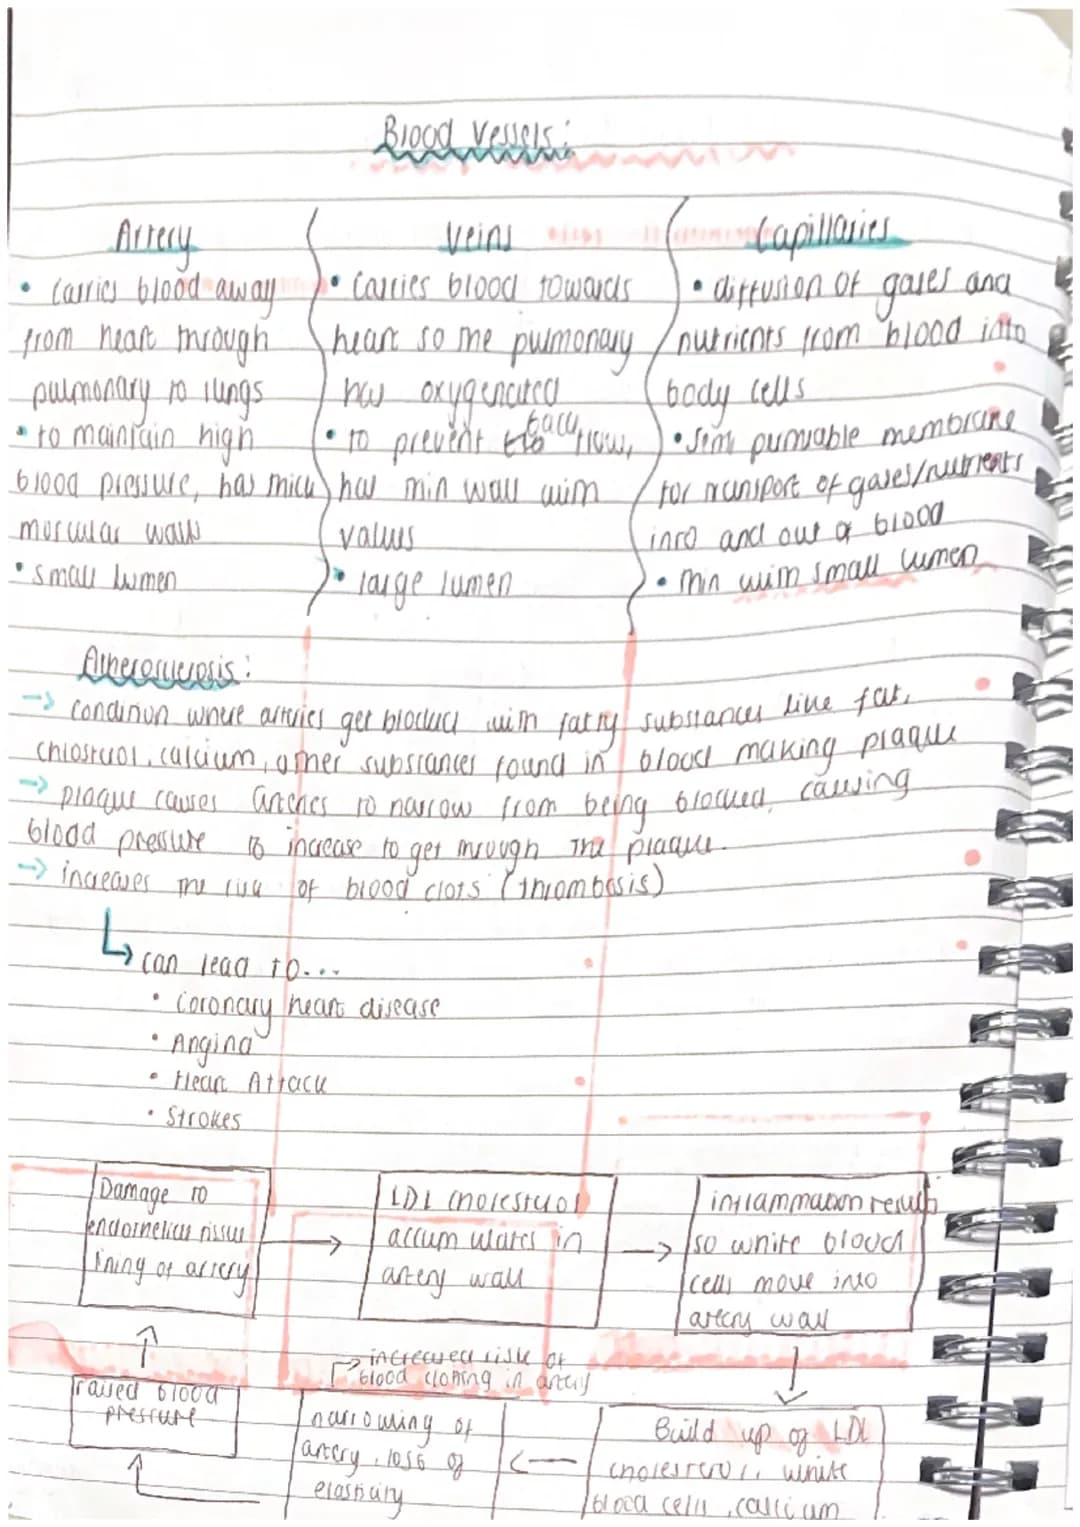 Blood Vessels:
Artery
• Carries blood away
from heart through
pulmonary to lungs
• to maintain high
blood pressure, has thick
muscular walls
• small lumen
Veins
• Carries blood towards
heart so the pulmonary
has oxygenated
• to prevent back flow,
has thin wall with
valves
• large lumen
Capillaries
• diffusion of gases and
nutrients from blood into
body cells
• semi permable membrane
for transport of gases/nutrients
into and out of blood
• thin with small lumen
Atherosclerosis:
→ condition where arteries get blocked with fatty substances like fat,
cholestrol, calcium, other substances found in blood making plaque
→ plaque causes arteries to narrow from being blocked, causing
blood pressure to increase to get through the plaque.
→ increases the risk of blood clots (thrombosis)
↳ can lead to...
• Coronary heart disease
• Angina
• Heart Attack
• Strokes
Damage to
endothelial tissue
lining of artery
→
LDL cholesterol
accumulates in
artery wall
→
inflammation results
so white blood
cells move into
artery wall
↓
Build up of LDL
cholesterol, white
blood cells, calcium
←
→ increased risk of
blood clotting in artery
narrowing of
artery, loss of
elasticity
raised blood
pressure
↑
↑